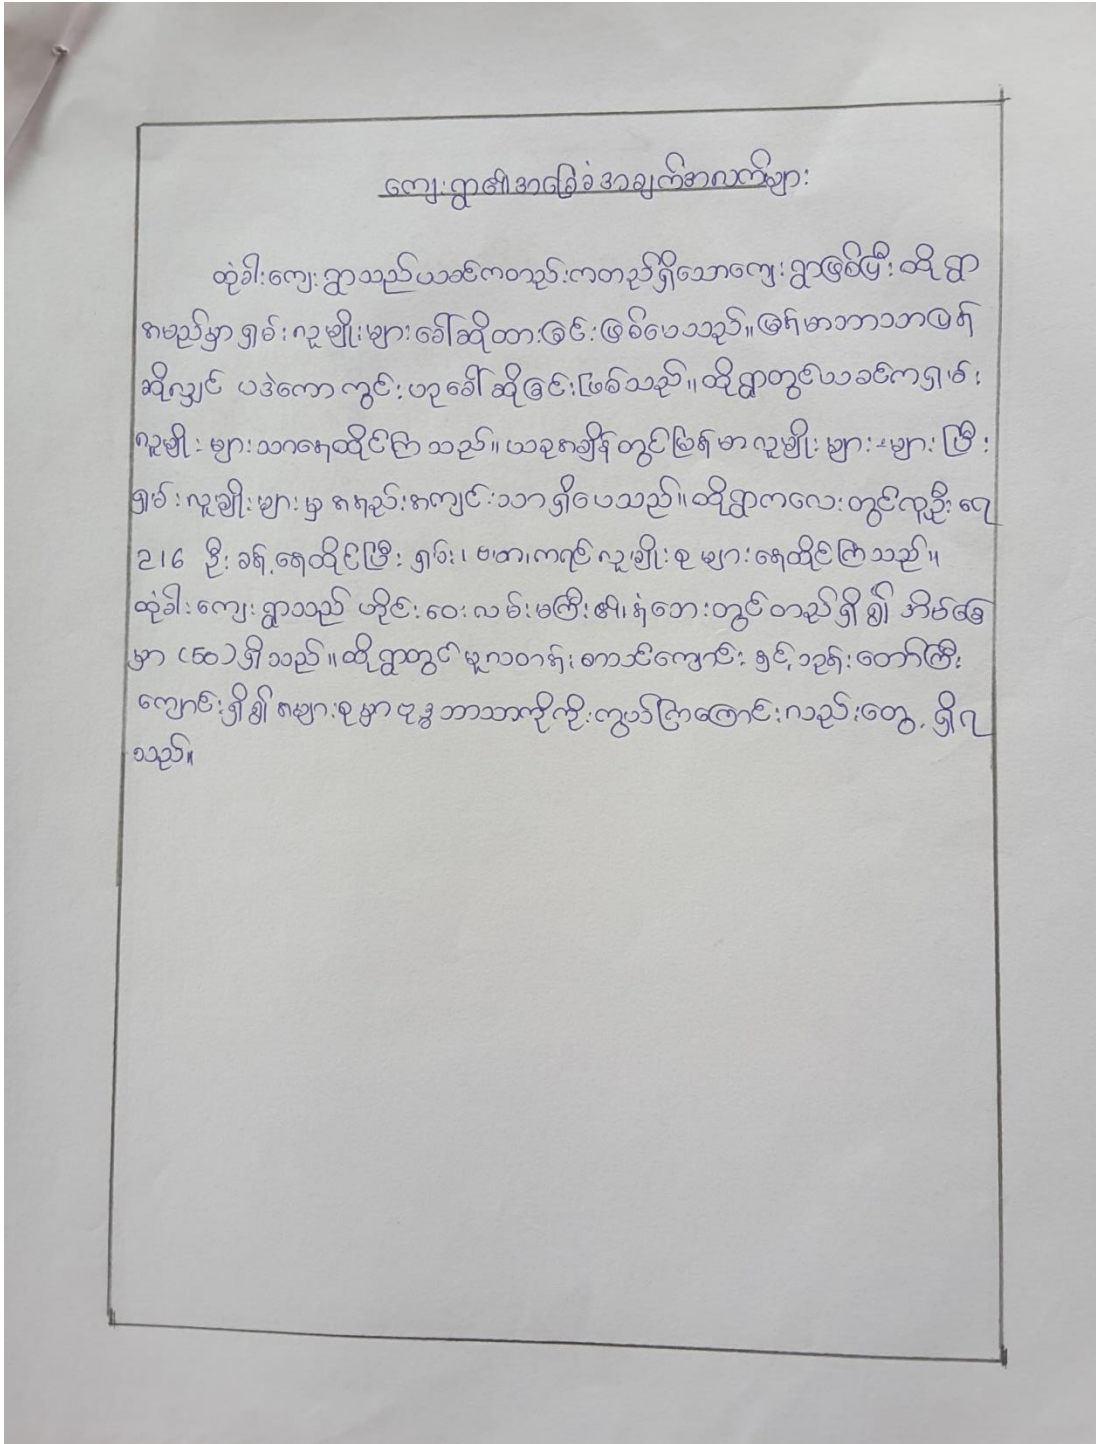 ကျေးရွာ၏အခြေခံအချက်အလက်များ
ထုံခါးကျေးရွာသည်ယခင်ကတည်းကတည်ရှိသောကျေးရွာဖြစ်ပြီး ထိုရွာ
အမည်မှာ ရှမ်းလူမျိုးများခေါ်ဆိုထားခြင်းဖြစ်ပေသည်။ မြန်မာဘာသာပြန်
ဆိုလျှင် ပဒဲကောကွင်းဟုခေါ်ဆိုခြင်းဖြစ်သည်။ ထိုရွာတွင်ယခင်ကရှမ်း
လူမျိုးများသာနေထိုင်ကြသည်။ ယခုအချိန်တွင်မြန်မာလူမျိုးများ များပြီး
ရှမ်းလူမျိုးများမှ အနည်းအကျင်းသာရှိပေသည်။ ထိုရွာကလေးတွင်လူဦးရေ
216 ဦးခန့်နေထိုင်ပြီး ရှမ်း၊ ဗမာ၊ ကရင်လူမျိုးစုများနေထိုင်ကြသည်။
ထုံခါးကျေးရွာသည် ဟိုင်းဝေးလမ်းမကြီး၏ နံဘေးတွင်တည်ရှိ၍ အိမ်ခြေ
မှာ (50) ရှိသည်။ ထိုရွာတွင် မူလတန်းစာသင်ကျောင်းနှင့် ဘုန်းတော်ကြီး
ကျောင်းရှိ၍ အများစုမှာ ဗုဒ္ဓဘာသာကိုကိုးကွယ်ကြကြောင်းလည်းတွေ့ရှိရ
သည်။